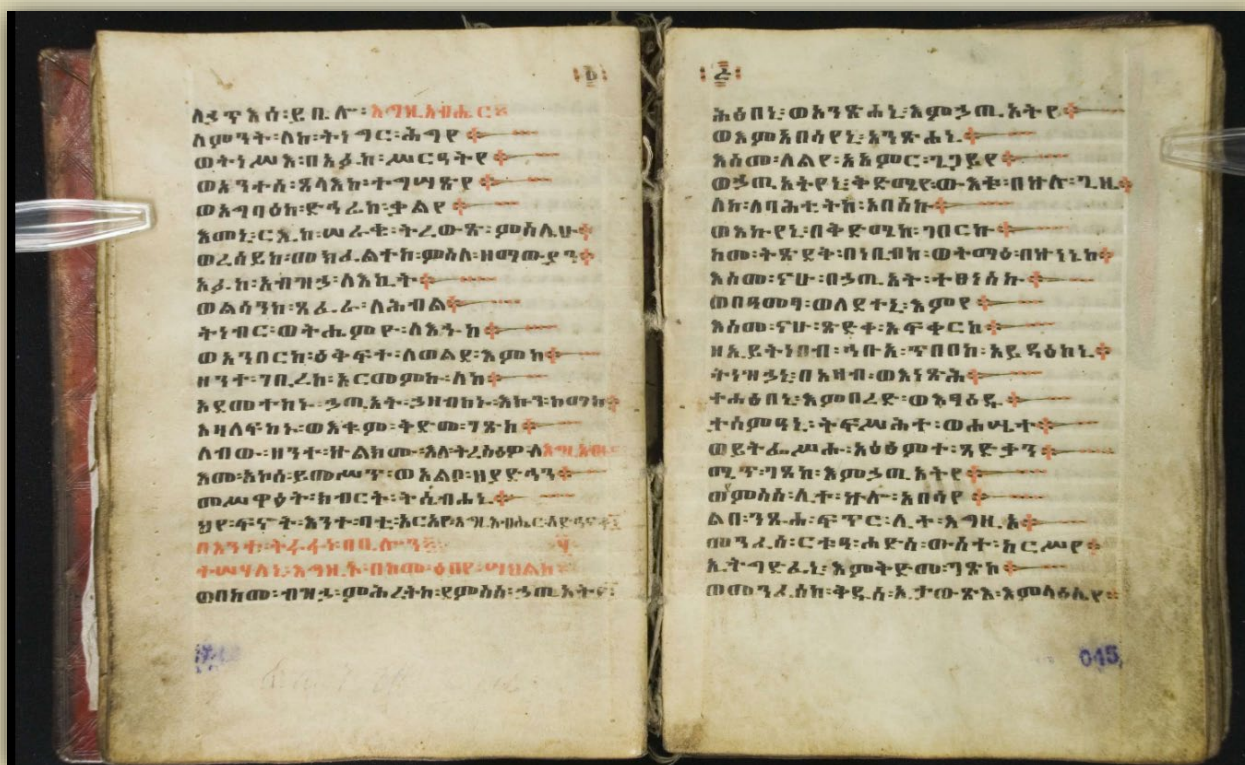 ለኃጥእሰ፡ይቤሎ፡እግዚአብሔር፨
ለምንት፡ለከ፡ትነግር፡ሕግየ
ወትነሥእ፡በአፉከ፡ሥርዓትየ
ወአንተሰ፡ጸላእከ፡ተግሣጽየ
ወአግባዕከ፡ድኅሬከ፡ቃልየ
እመኒ፡ርኢከ፡ሠራቄ፡ትረውጽ፡ምስሌሁ
ወረሰይከ፡መክፈልተከ፡ምስለ፡ዘማውያን
አፉከ፡አብዝኃ፡ለእኪት
ወልሳንከ፡ጸፈራ፡ለሕብል
ትነብር፡ወትሐምዮ፡ለእኁከ
ወአንበርከ፡ዕቅፍተ፡ለወልደ፡እምከ
ዘንተ፡ገቢረከ፡አርመምኩ፡ለከ
አደመተከኑ፡ኃጢአት፡ኃዘብከኑ፡እኩን፡ከማከ
እዛለፍከኑ፡ወእቁም፡ቅድመ፡ገጽከ
ለብው፡ዘንተ፡ኵልክሙ፡እለትረስዕዎለእግዚአብ
እመ፡አኮሰ፡ይመሥጥ፡ወአልቦ፡ዘያድኅን
መሥዋዕት፡ክብርት፡ትሴብሐኒ
ህየ፡ፍኖት፡እንተ፡ባቲ፡አርአዮ፡እግዚአብሔር፡
በእንተ፡
ተሣሃለኒ፡እግዚኦ፡በከመ፡ዕበየ፡ሣህልከ
ወበከመ፡ብዝኃ፡ምሕረትከ፡ደምስስ፡ኃጢአትየ
ሕፅበኒ፡ወአንጽሐኒ፡እምኃጢአትየ
ወእምአበሳየኒ፡አንጽሐኒ
እስመ፡ለልየ፡አአምር፡ጌጋይየ
ወኃጢአትየኒ፡ቅድሜየ፡ውእቱ፡በኵሉ፡ጊዜ
ለከ፡ለባሕቲትከ፡አበስኩ
ወእኩየኒ፡በቅድሜከ፡ገበርኩ
ከመ፡ትጽደቅ፡በነቢብከ፡ወትማዕ፡በኵነኔከ
እስመ፡ናሁ፡በኃጢአት፡ተፀነስኩ
ወበዓመፃ፡ወለደተኒ፡እምየ
እስመ፡ናሁ፡ጽድቀ፡አፍቀርከ
ዘኢይትነበብ፡ኅቡአ፡ጥበበከ፡አይዳዕከኒ
ትነዝኃኒ፡በአዛብ፡ወእነጽሕ
ተሐፅበኒ፡እምበረድ፡ወእፃዕዱ
ተሰምዓኒ፡ትፍሥሕተ፡ወሐሤተ
ወይትፌሥሑ፡አዕፅምተ፡ጻድቃን
ሚጥ፡ገጸከ፡እምኃጢአትየ
ወደምስስ፡ሊተ፡ኵሎ፡አበሳየ
ልበ፡ንጹሐ፡ፍጥር፡ሊተ፡እግዚኦ
መንፈሰ፡ርቱዓ፡ሐድስ፡ውስተ፡ከርሥየ
ኢትግድፈኒ፡እምቅድመ፡ገጽከ
ወመንፈሰከ፡ቅዱሰ፡ኢታውጽእ፡እምላዕሌየ
045